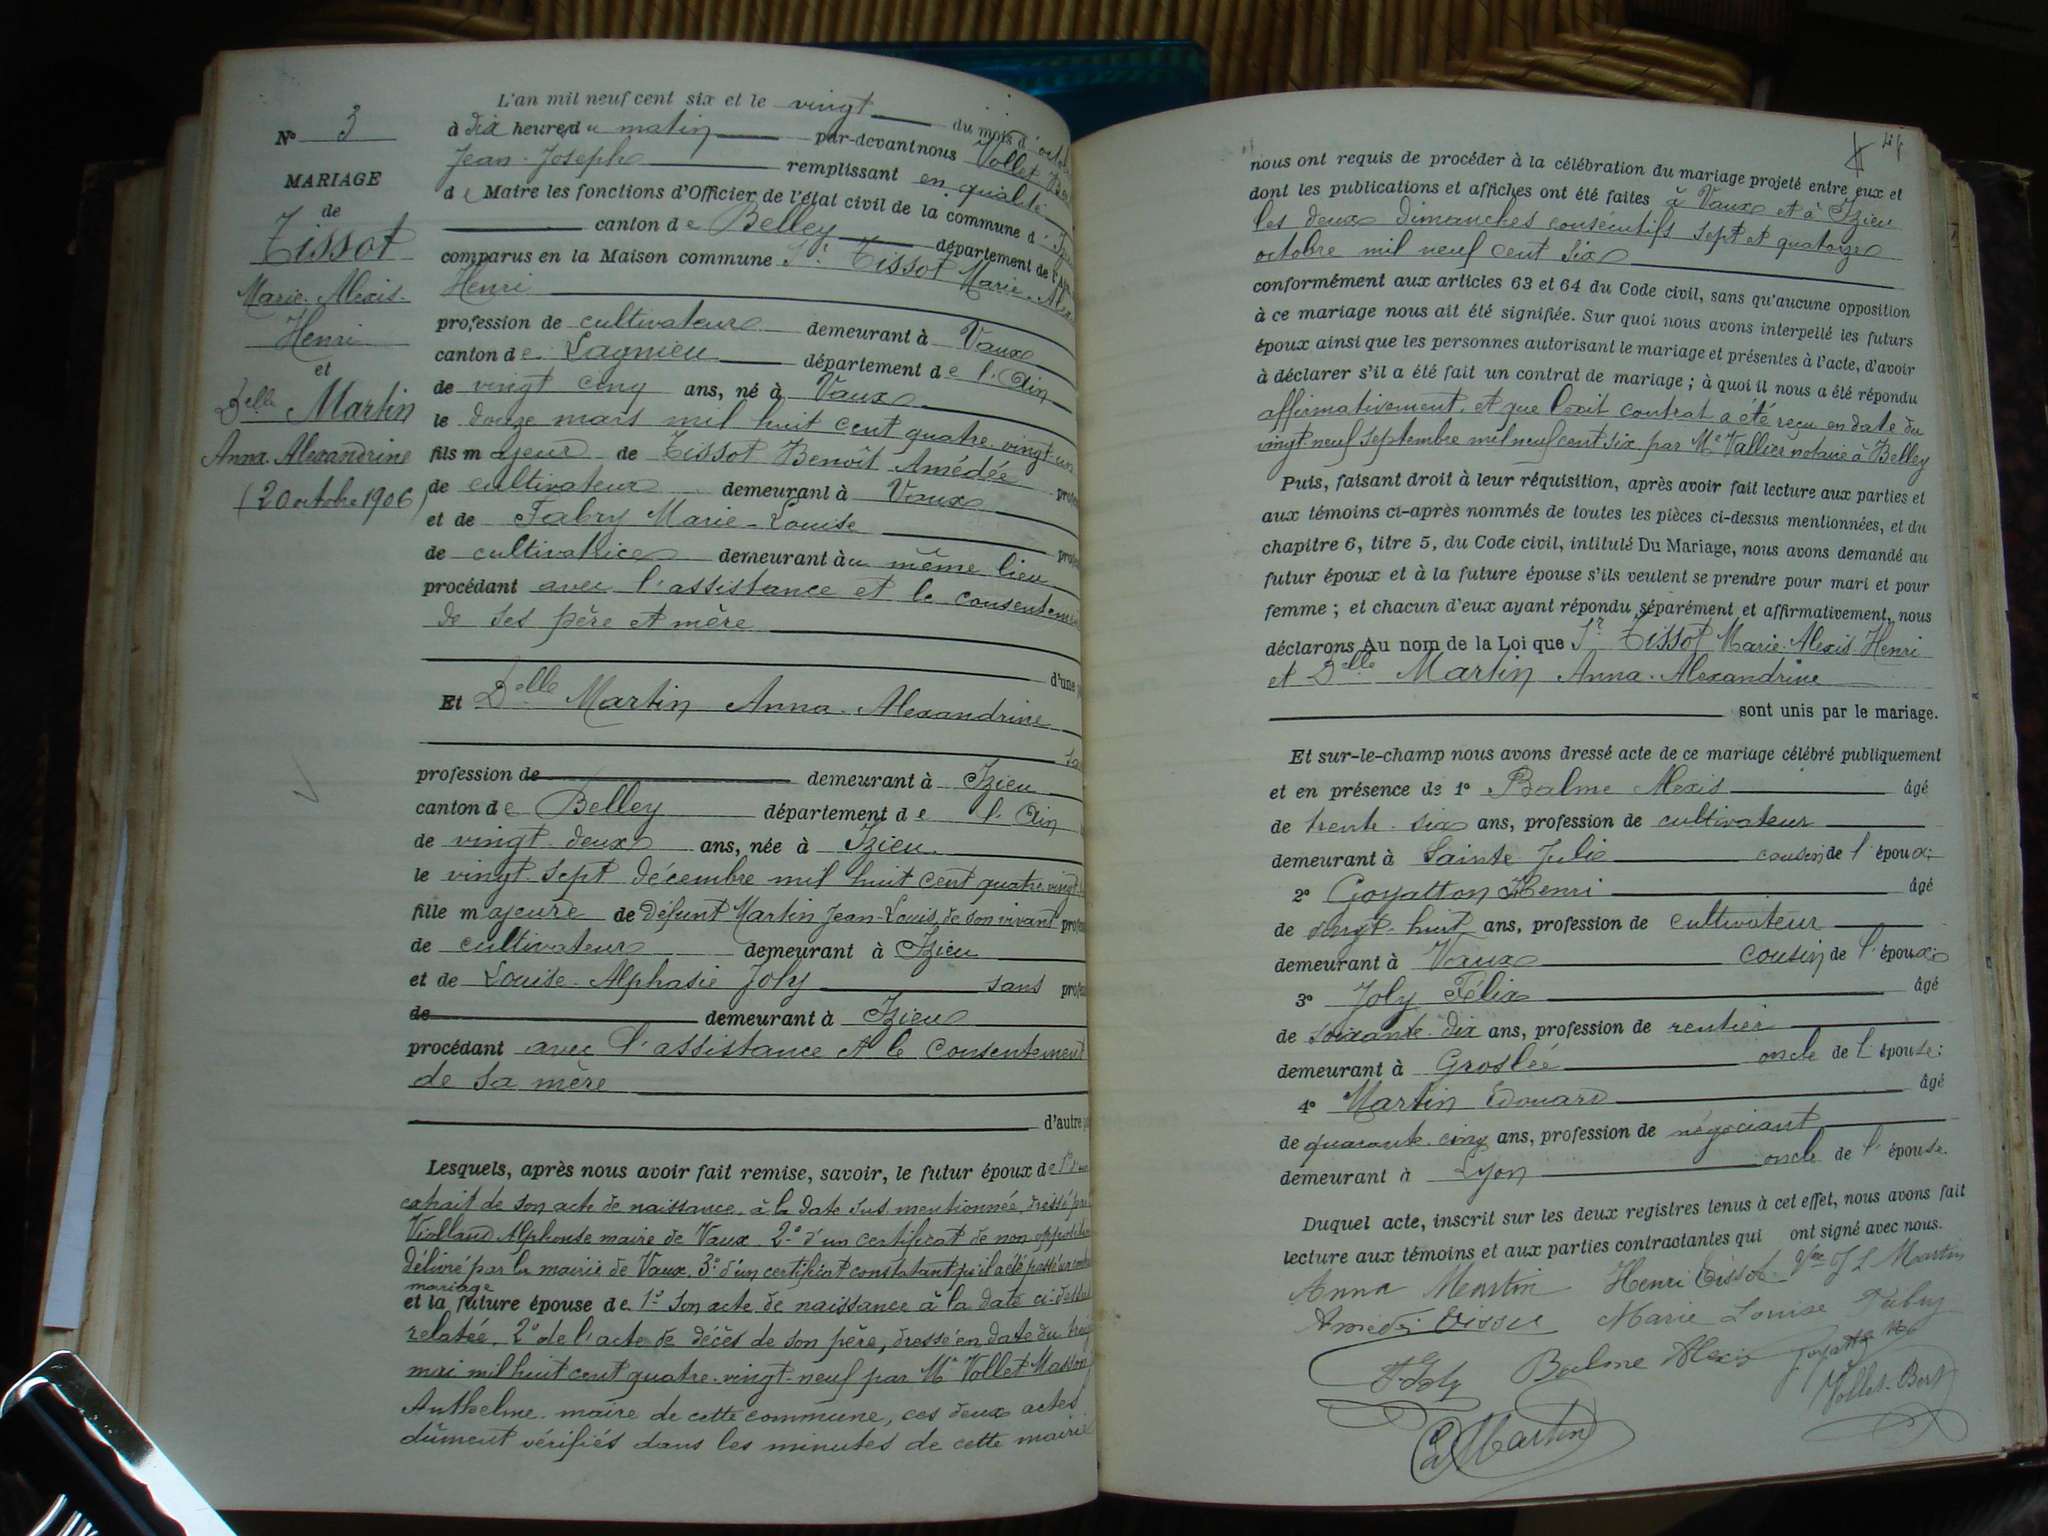 N° 3
MARIAGE
de
Tissot
Marie-Alexis-
Henri
et
Delle Martin
Anna-Alexandrine
(20 octobre 1906)
L'an mil neuf cent six et le vingt du mois d'
à dix heures du matin par-devant nous Vollet
Jean-Joseph remplissant en qualité
de Maire les fonctions d'Officier de l'état civil de la commune d'
canton de Belley département de l'
comparus en la Maison commune Sr Tissot Marie
Henri
profession de cultivateur demeurant à Vaux
canton de Lagnieu département de l'Ain
de vingt cinq ans, né à Vaux
le douze mars mil huit cent quatre-vingt-un
fils majeur de Tissot Benoît Amédée
de cultivateur demeurant à Vaux
et de Fabry Marie-Louise
de cultivatrice demeurant au même lieu
procédant avec l'assistance et le
de ses père et mère
d'une
Et Delle Martin Anna-Alexandrine
profession de demeurant à Izieu
canton de Belley département de l'Ain
de vingt-deux ans, née à Izieu
le vingt-sept décembre mil huit cent quatre
fille majeure de défunt Martin Jean-Louis, de son vivant
de cultivateur demeurant à Izieu
et de Louise-Alphasie Joly sans
de demeurant à Izieu
procédant avec l'assistance et le consentement
de sa mère
d'autre
Lesquels, après nous avoir fait remise, savoir, le futur époux de 1°
extrait de son acte de naissance à la date sus-mentionnée, dressé
Violland Alphonse maire de Vaux 2° d'un certificat de non
délivré par la mairie de Vaux. 3° d'un certificat constatant qu'il a été passé un
mariage
et la future épouse de 1° son acte de naissance à la date ci-dessus
relatée. 2° de l'acte de décès de son père, dressé en date du
mai mil huit cent quatre-vingt-neuf par Mr Vollet Masson
Anthelme maire de cette commune, ces deux actes
dûment vérifiés dans les minutes de cette mairie
nous ont requis de procéder à la célébration du mariage projeté entre eux et
dont les publications et affiches ont été faites à Vaux et à Izieu
les deux dimanches consécutifs sept et quatorze
octobre mil neuf cent six
conformément aux articles 63 et 64 du Code civil, sans qu'aucune opposition
à ce mariage nous ait été signifiée. Sur quoi nous avons interpellé les futurs
époux ainsi que les personnes autorisant le mariage et présentes à l'acte, d'avoir
à déclarer s'il a été fait un contrat de mariage ; à quoi il nous a été répondu
affirmativement et que ledit contrat a été reçu en date du
vingt-neuf septembre mil neuf cent six par Me Vallier notaire à Belley
Puis, faisant droit à leur réquisition, après avoir fait lecture aux parties et
aux témoins ci-après nommés de toutes les pièces ci-dessus mentionnées, et du
chapitre 6, titre 5, du Code civil, intitulé Du Mariage, nous avons demandé au
futur époux et à la future épouse s'ils veulent se prendre pour mari et pour
femme ; et chacun d'eux ayant répondu séparément et affirmativement, nous
déclarons Au nom de la Loi que Sr Tissot Marie-Alexis-Henri
et Delle Martin Anna-Alexandrine
sont unis par le mariage.
Et sur-le-champ nous avons dressé acte de ce mariage célébré publiquement
et en présence de 1° Balme Alexis âgé
de trente-six ans, profession de cultivateur
demeurant à Sainte Julie cousin de l'époux;
2° Goyatton Henri âgé
de vingt-huit ans, profession de cultivateur
demeurant à Vaux cousin de l'époux;
3° Joly Félix âgé
de soixante-dix ans, profession de rentier
demeurant à Groslée oncle de l'épouse;
4° Martin Edouard âgé
de quarante-cinq ans, profession de négociant
demeurant à Lyon oncle de l'épouse.
Duquel acte, inscrit sur les deux registres tenus à cet effet, nous avons fait
lecture aux témoins et aux parties contractantes qui ont signé avec nous.
Anna Martin Henri Tissot Vve J L Martin
Amédé Tissot Marie Louise Fabry
F Joly Balme Alexis
Vollet-Bert
Martin